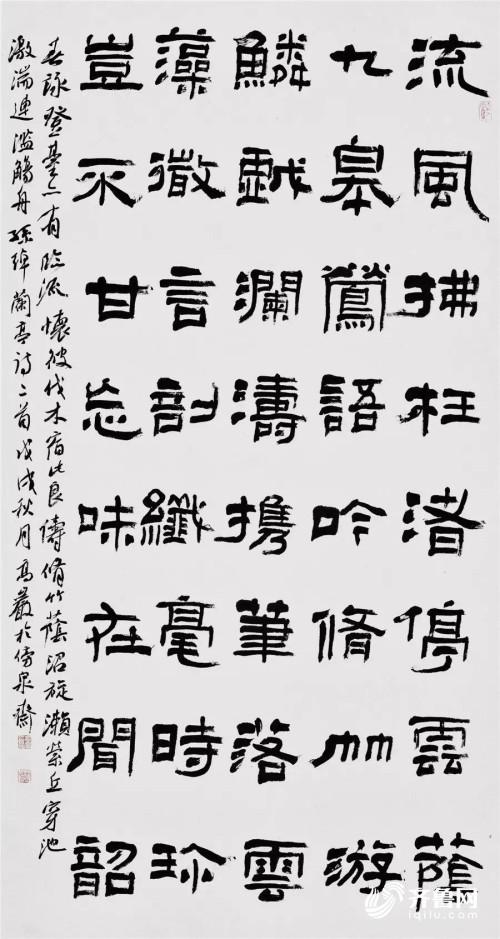 流風拂枉渚停雲蔭
九皋鶯語吟脩竹游
鱗戲瀾濤攜筆落雲
藻微言剖纖毫時珍
豈不甘忘味在聞韶
春詠登臺亦有臨流懷彼伐木宿此良儔脩竹蔭沼旋瀨縈丘穿池
激湍連濫觴舟孫綽蘭亭詩二首戊戌秋月高嚴於傍泉齋
齐鲁网
iqilu.com